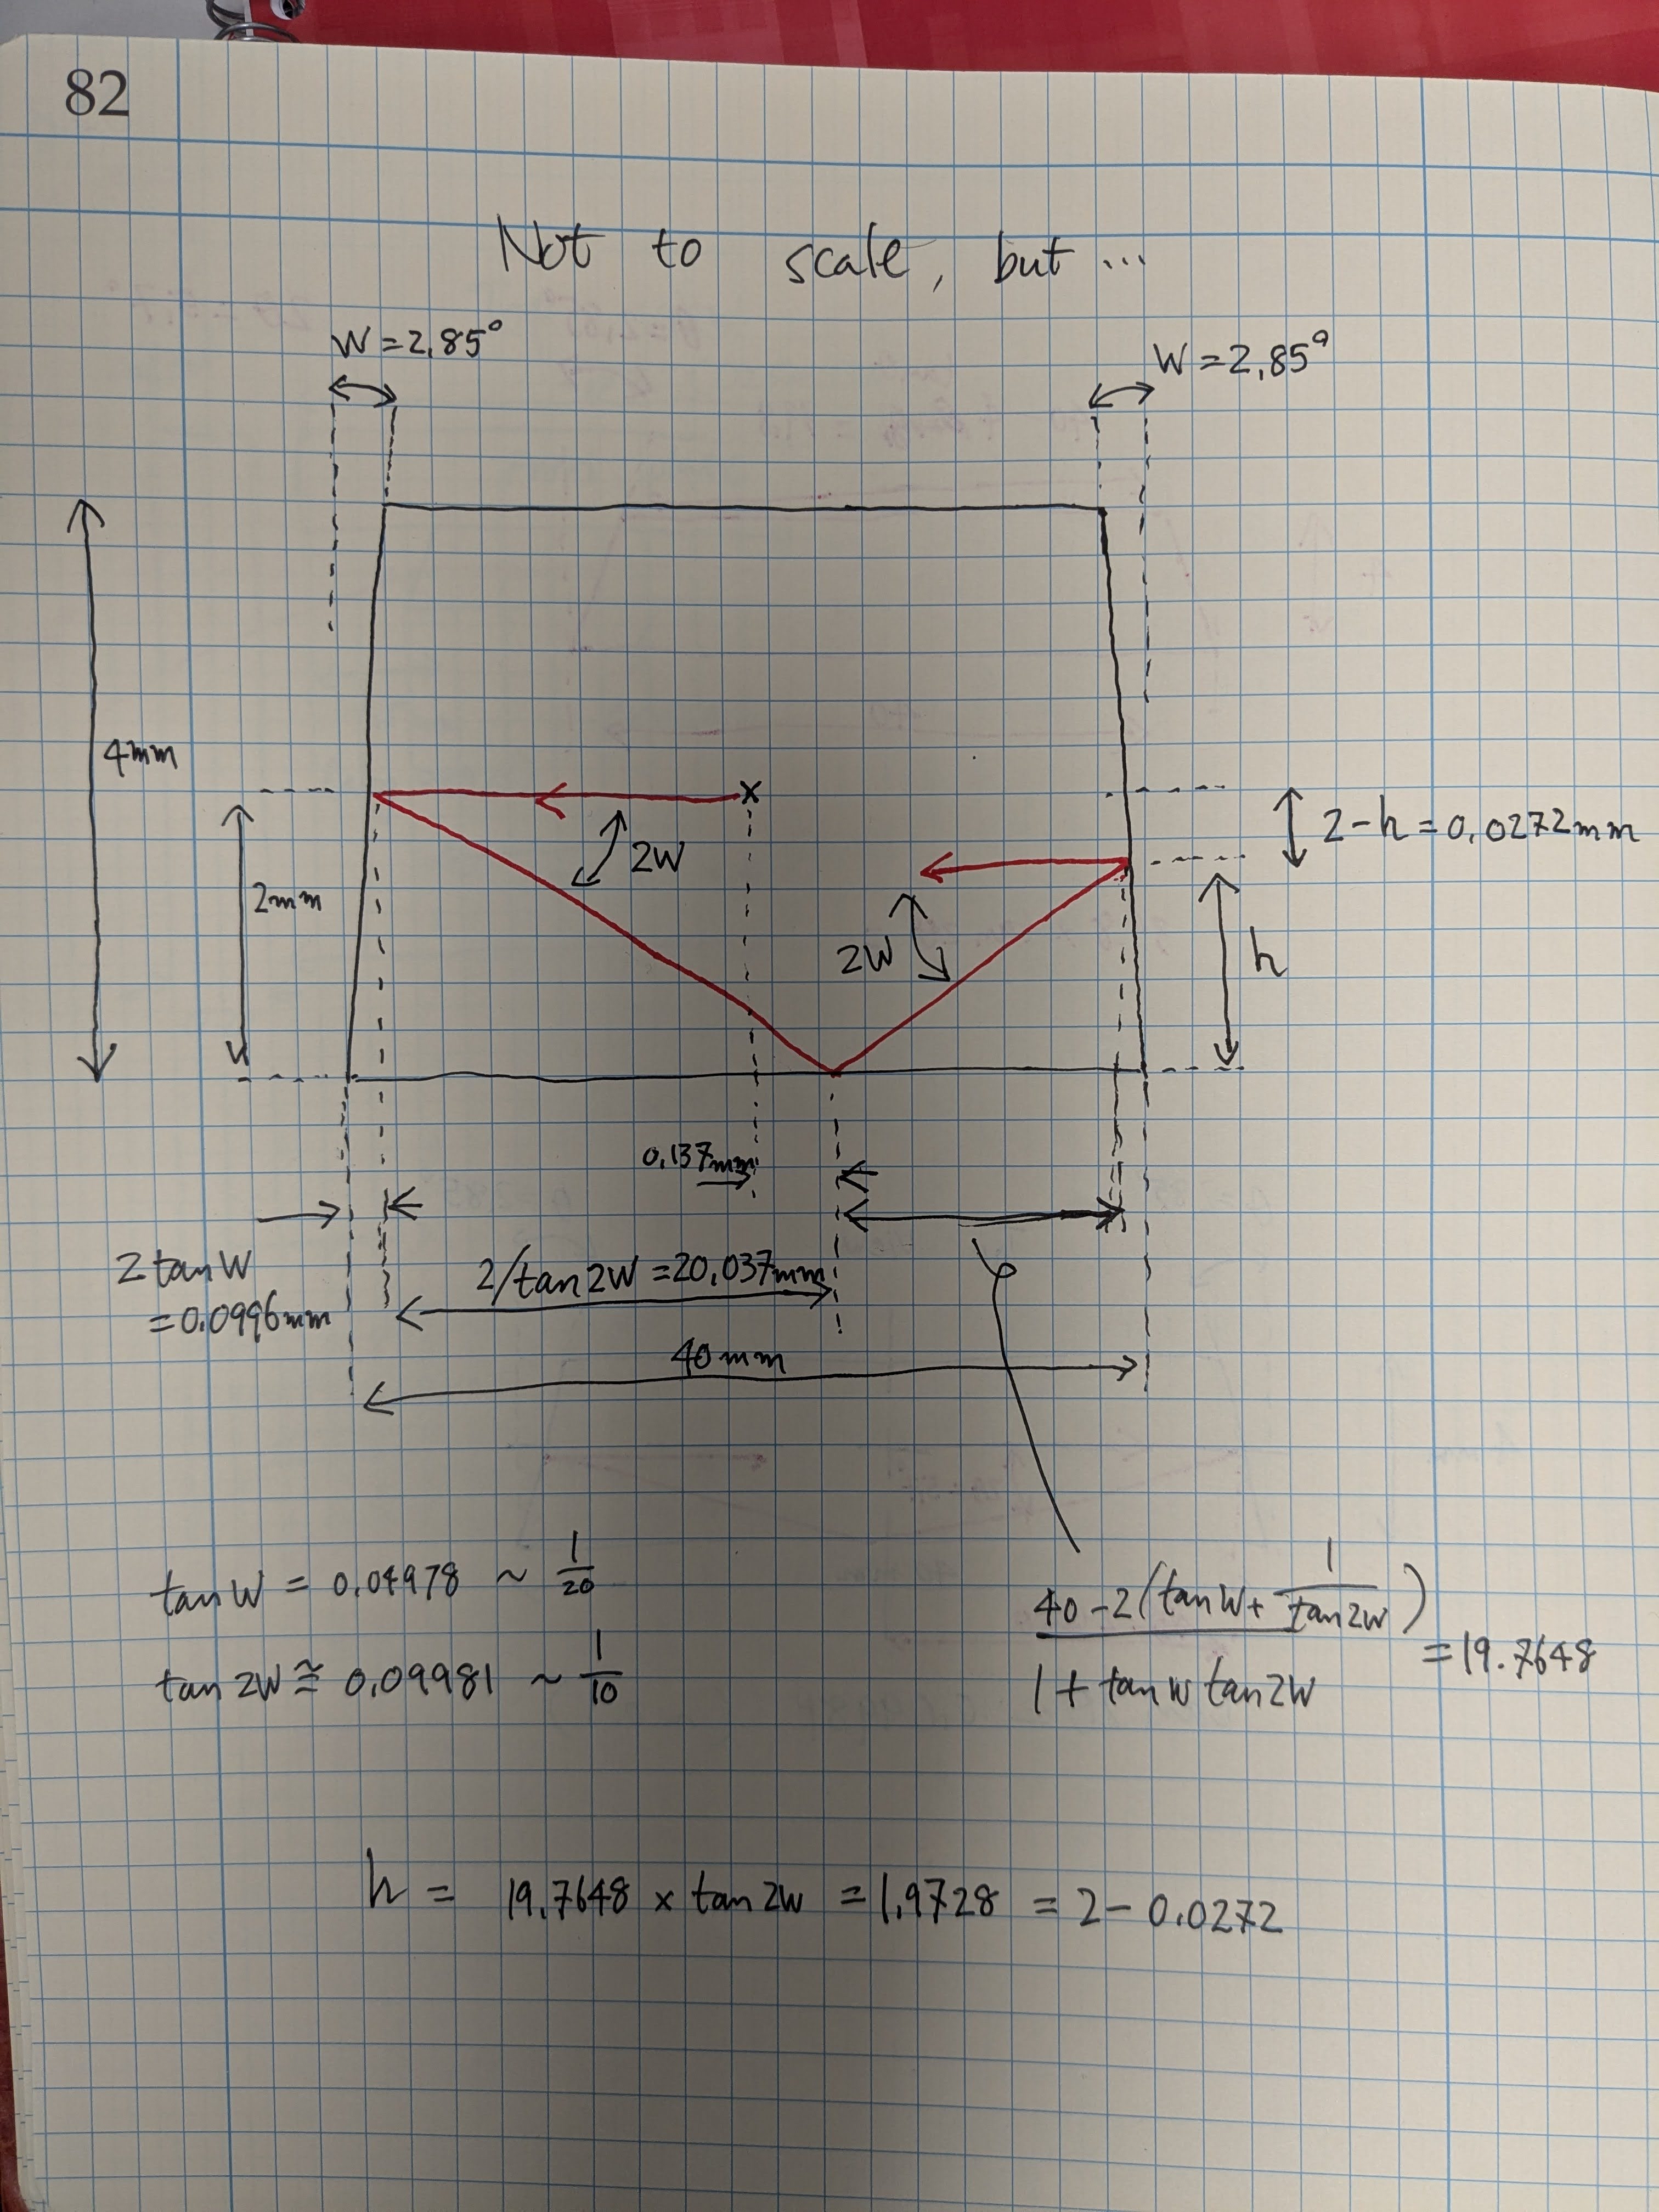 82
Not to scale, but ...
W = 2.85°
W = 2.85°
4mm
2mm
2W
2W
2-h = 0.0272mm
h
0.137mm
2 tan W
= 0.0996mm
2/tan 2W = 20.037mm
40mm
tan W = 0.04978 ~ 1/20
tan 2W ≅ 0.09981 ~ 1/10
40 - 2(tan W + 1/tan 2W)
1 + tan W tan 2W
= 19.7648
h = 19.7648 × tan 2W = 1.9728 = 2 - 0.0272